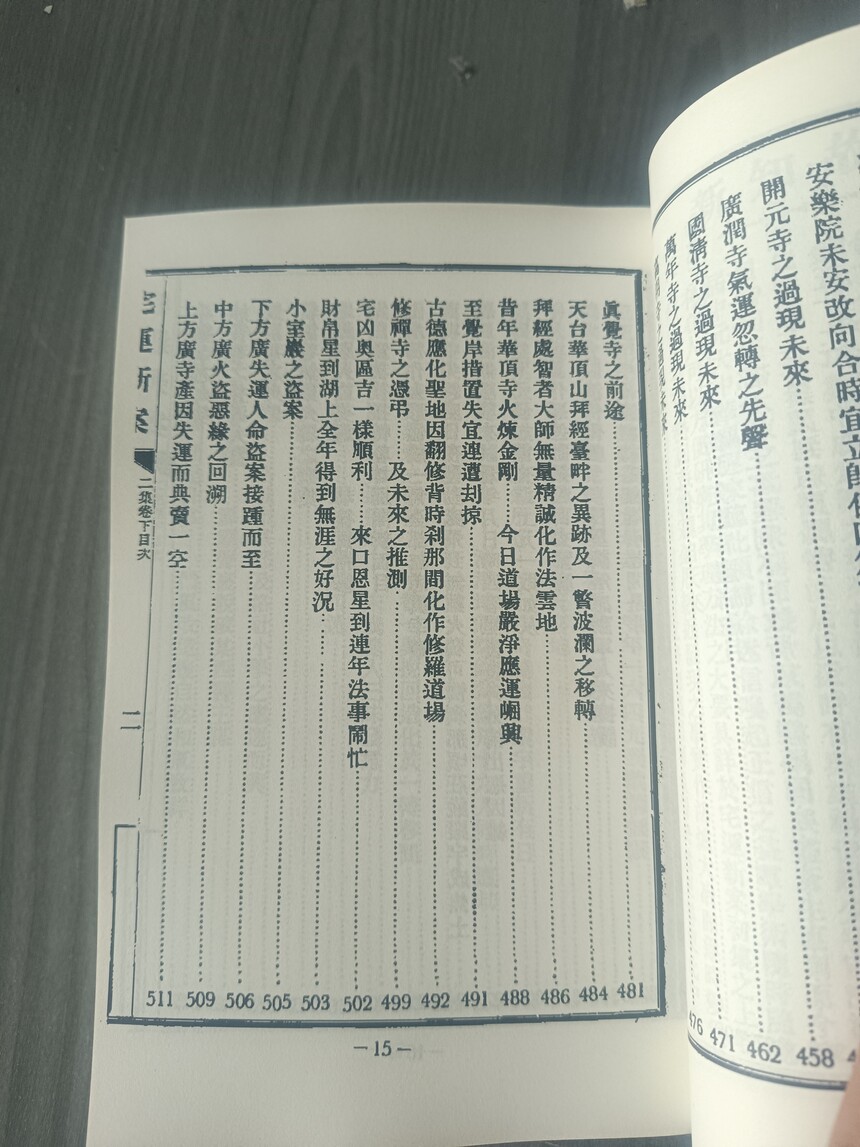 安樂院未安改向合時宜立
開元寺之過現未來
458
廣潤寺氣運忽轉之先聲
462
國清寺之過現未來
471
萬年寺之過現未來
476
眞覺寺之前途
481
天台華頂山拜經臺畔之異跡及一瞥波瀾之移轉
484
拜經處智者大師無量精誠化作法雲地
486
昔年華頂寺火煉金剛……今日道場嚴淨應運崛興
488
至覺岸措置失宜連遭刦掠
491
古德應化聖地因翻修背時刹那間化作修羅道場
492
修禪寺之憑弔……及未來之推測
499
宅凶奧區吉一樣順利……來口恩星到連年法事鬧忙
502
財帛星到湖上全年得到無涯之好況
503
小室巖之盜案
505
下方廣失運人命盜案接踵而至
506
中方廣火盜惡緣之回溯
509
上方廣寺產因失運而典賣一空
511
宅運新案
二集卷下目次
二
—15—